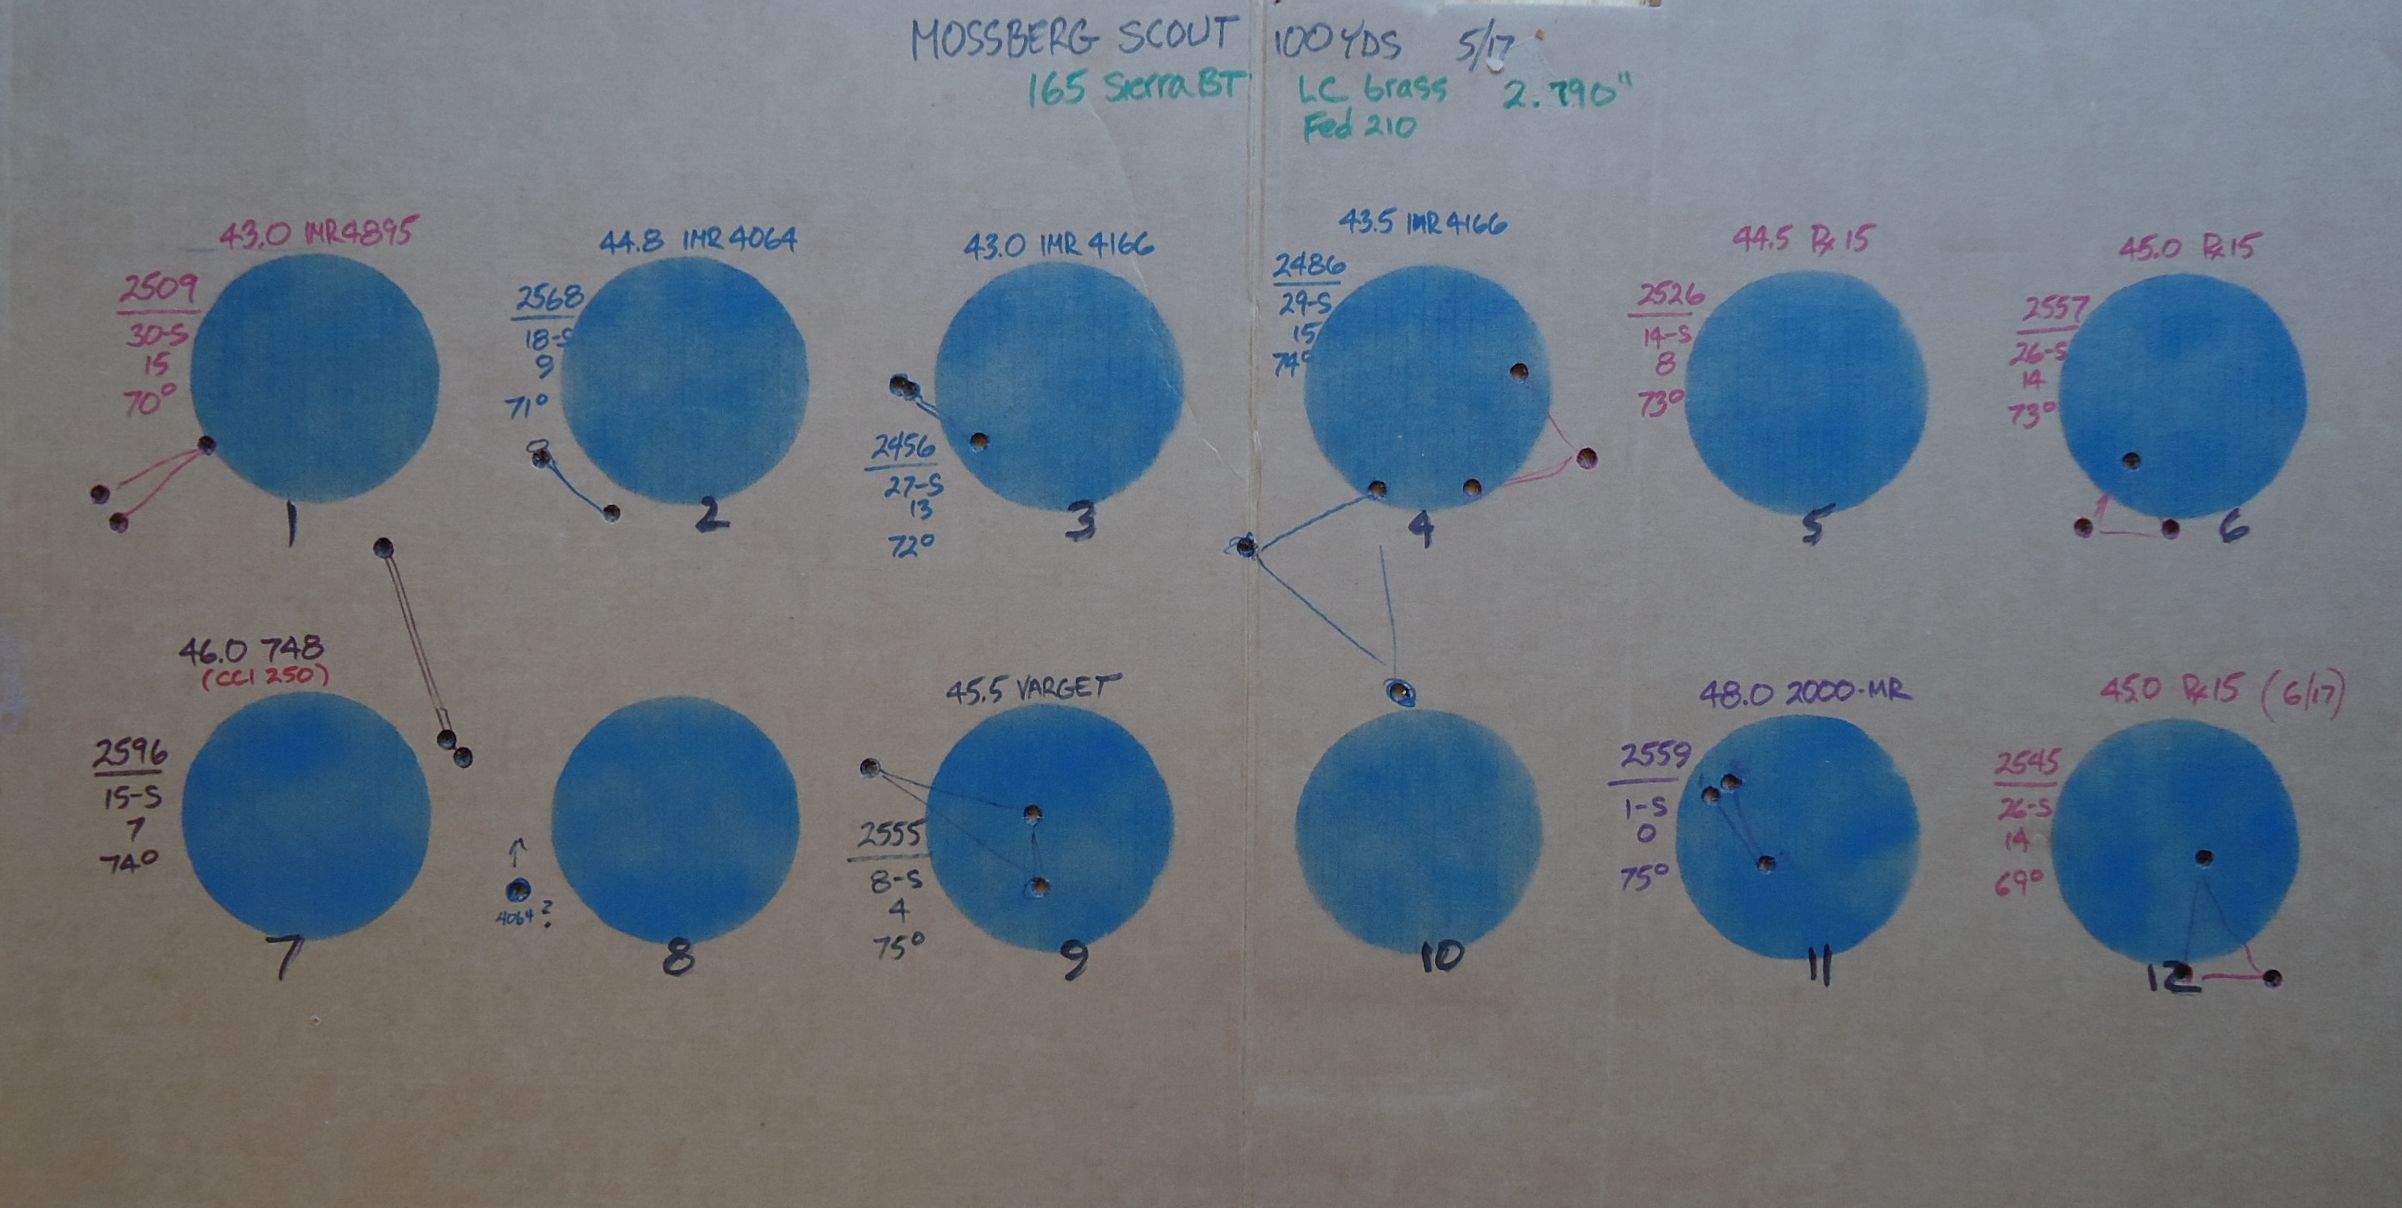 MOSSBERG SCOUT 100 YDS 5/17
165 Sierra BT LC brass 2.790"
Fed 210
43.0 IMR 4895
2509
30-S
15
70°
1
44.8 IMR 4064
2568
18-S
9
71°
2
43.0 IMR 4166
2456
27-S
13
72°
3
43.5 IMR 4166
2486
29-S
15
74°
4
44.5 Rx 15
2526
14-S
8
73°
5
45.0 Rx 15
2557
26-S
14
73°
6
46.0 748
(CCI 250)
2596
15-S
7
74°
7
4064?
8
45.5 VARGET
2555
8-S
4
75°
9
10
48.0 2000-MR
2559
1-S
0
75°
11
45.0 Rx 15 (6/17)
2545
26-S
14
69°
12